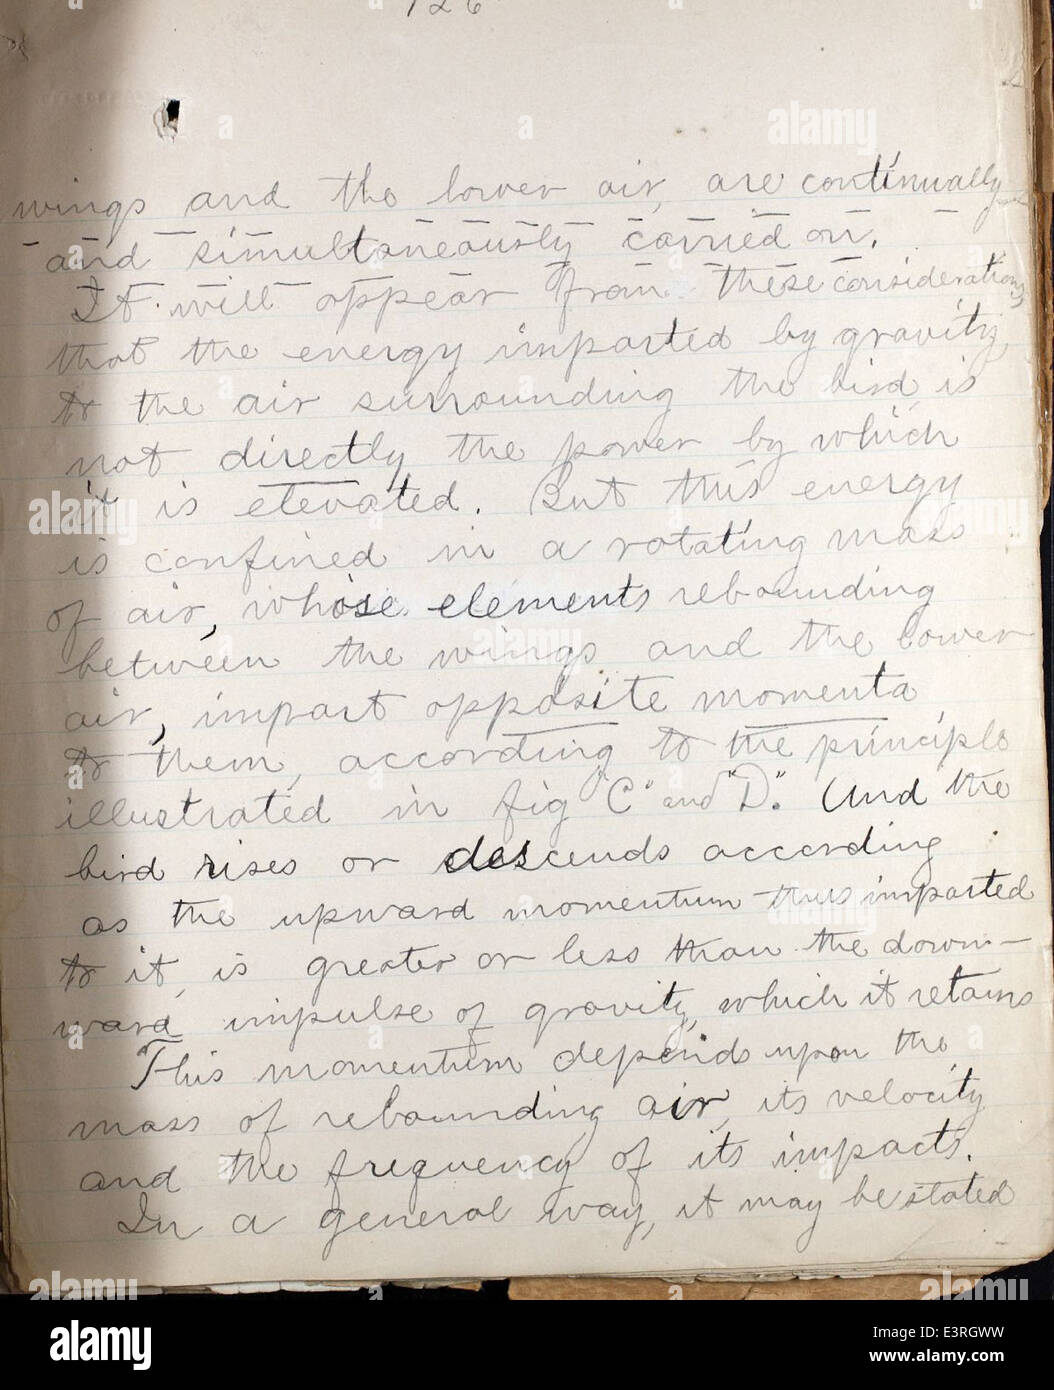 126
wings and the lower air, are continually
and simultaneously carried on.
It will appear from these considerations,
that the energy imparted by gravity,
to the air surrounding the bird, is
not directly the power by which
it is elevated. But this energy
is confined in a rotating mass
of air, whose elements rebounding
between the wings and the lower
air, impart opposite momenta
to them, according to the principle
illustrated in fig "C" and "D". And the
bird rises or descends according
as the upward momentum thus imparted
to it, is greater or less than the down-
ward impulse of gravity, which it retains
This momentum depends upon the
mass of rebounding air, its velocity
and the frequency of its impacts.
In a general way, it may be stated
alamy
Image ID: E3RGWW
www.alamy.com